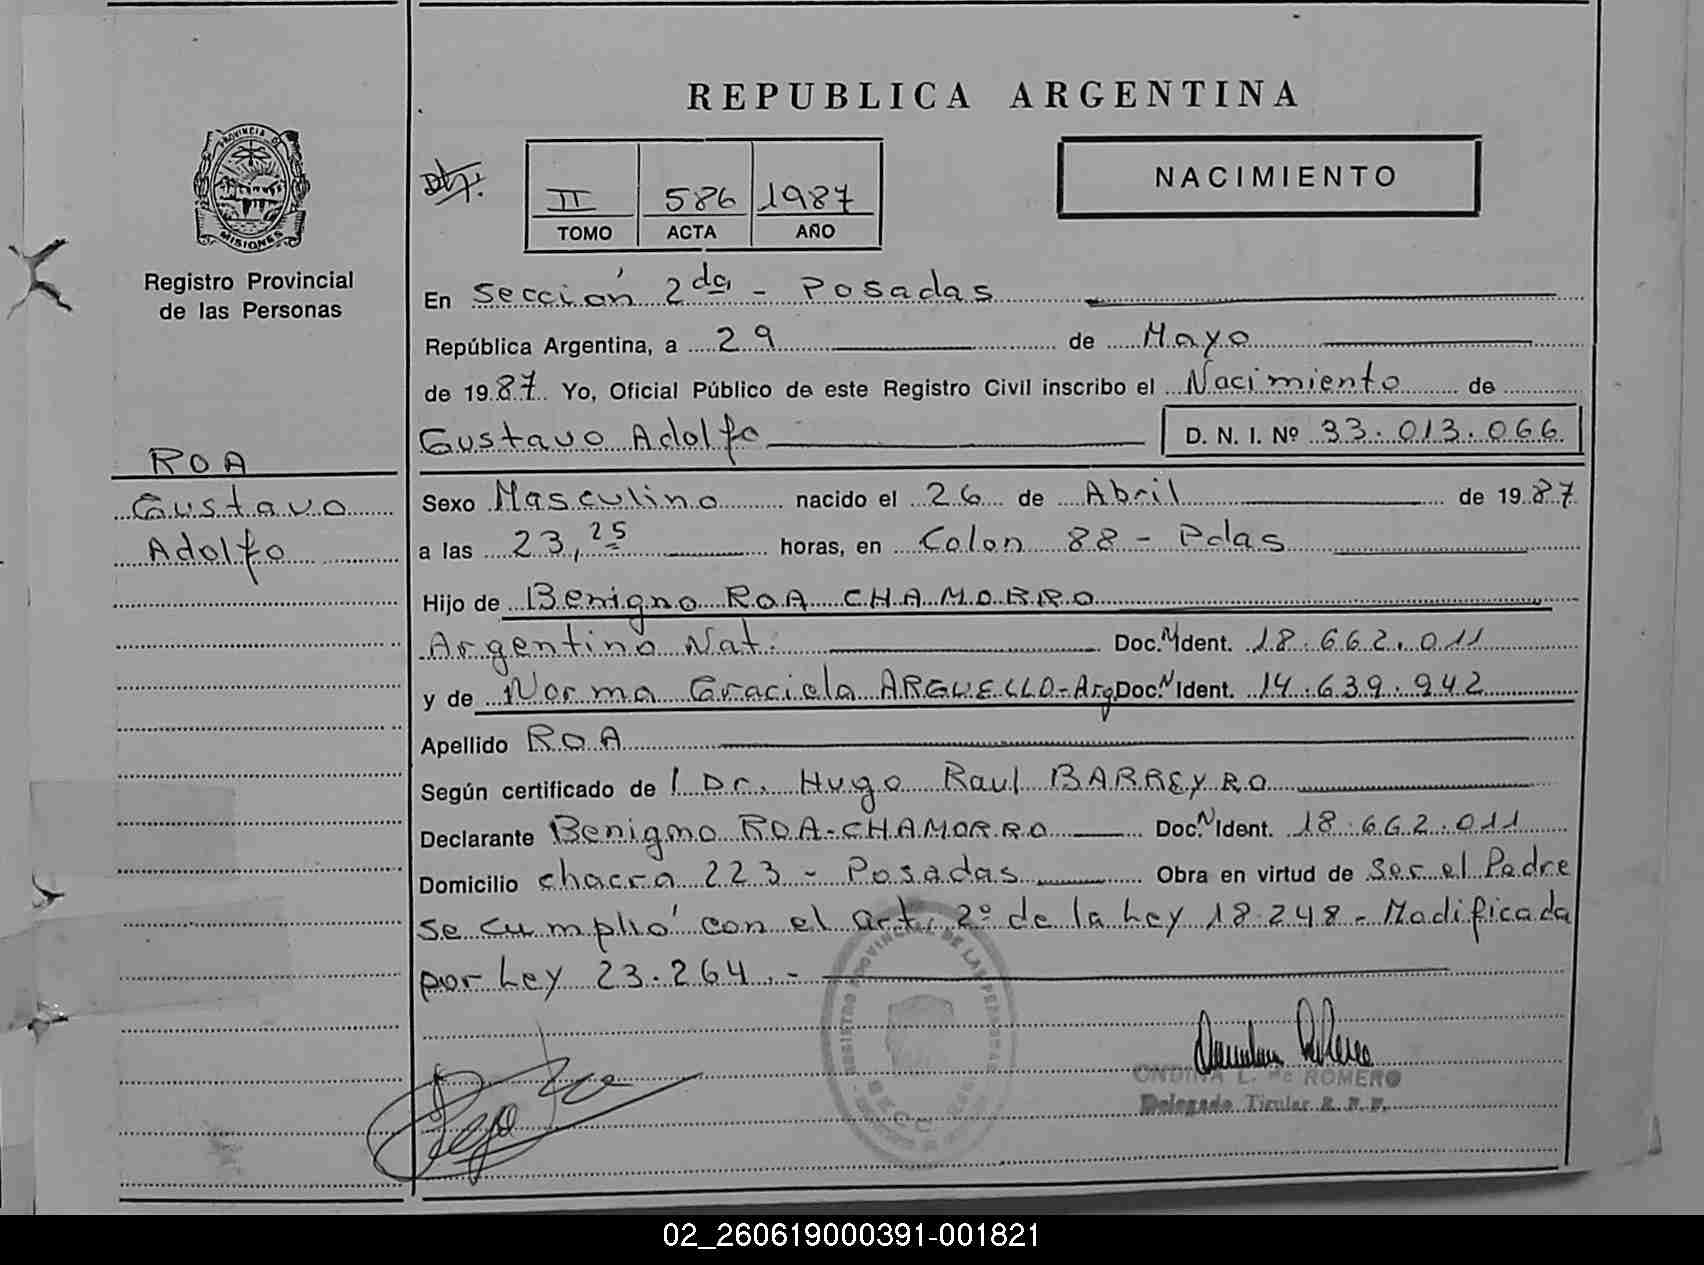 REPUBLICA ARGENTINA
PROVINCIA D MISIONES
Registro Provincial
de las Personas
II 586 1987
TOMO ACTA AÑO
NACIMIENTO
En Sección 2da - Posadas
República Argentina, a 29 de Mayo
de 1987 Yo, Oficial Público de este Registro Civil inscribo el Nacimiento de
Gustavo Adolfo D. N. I. Nº 33.013.066
ROA
Gustavo
Adolfo
Sexo Masculino nacido el 26 de Abril de 1987
a las 23,25 horas, en Colon 88 - Pdas
Hijo de Benigno ROA CHAMORRO
Argentino Nat. Doc. N Ident. 18.662.011
y de Norma Graciela ARGUELLO - Arg Doc. N Ident. 14.639.942
Apellido ROA
Según certificado de l Dr. Hugo Raul BARREYRO
Declarante Benigno ROA-CHAMORRO Doc. N Ident. 18.662.011
Domicilio chacra 223 - Posadas Obra en virtud de Ser el Padre
se cumplió con el art. 2º de la Ley 18.248 - Modificada
por Ley 23.264.-
REGISTRO PROVINCIAL DE LAS PERSONAS
ONDINA L. de ROMERO
Delegado Titular R. P. P.
02_260619000391-001821